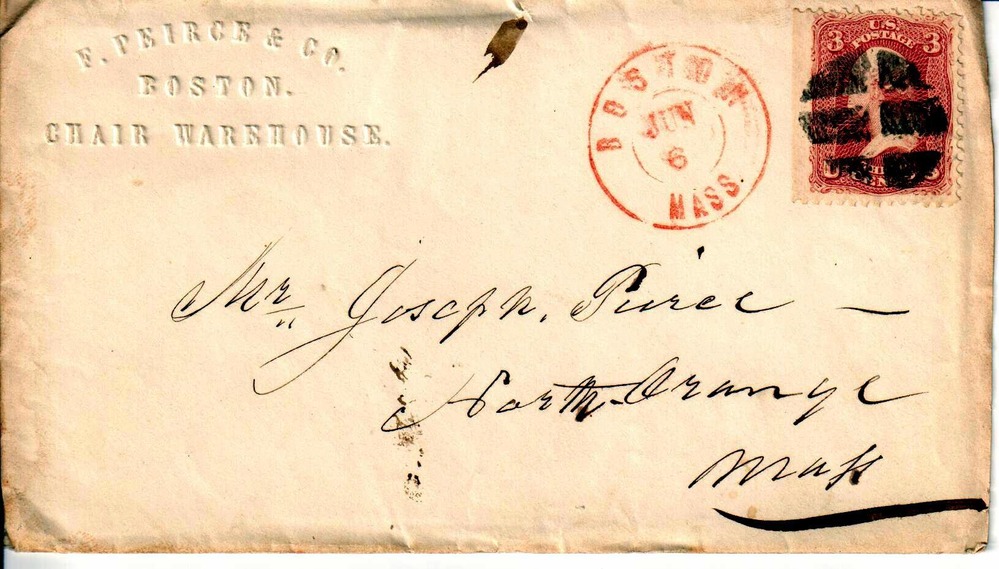 F. PEIRCE & CO.
BOSTON.
CHAIR WAREHOUSE.
BOSTON
JUN
6
MASS.
U.S.
POSTAGE
3 3
Mr. Joseph. Peirce —
North Orange
Mass